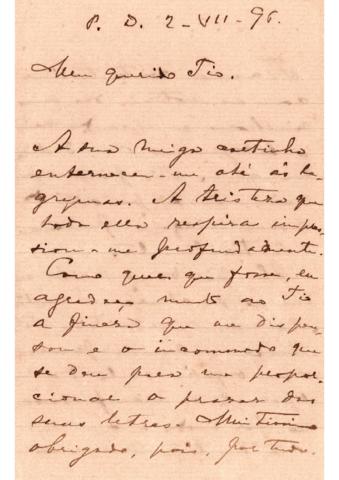 P. D. 2-VII-96.
Meu querido Tio.
A sua meiga cartinha
enterneceu-me até ás la-
grymas. A tristeza que
toda ella respira impres-
sionou-me profundamente.
Como quer que fosse, eu
agradeço muito ao Tio
a fineza que me dispen-
sou e o incommodo que
se deu para me propor-
cionar o prazer das
suas letras. Muitissimo
obrigado, pois, por tudo.